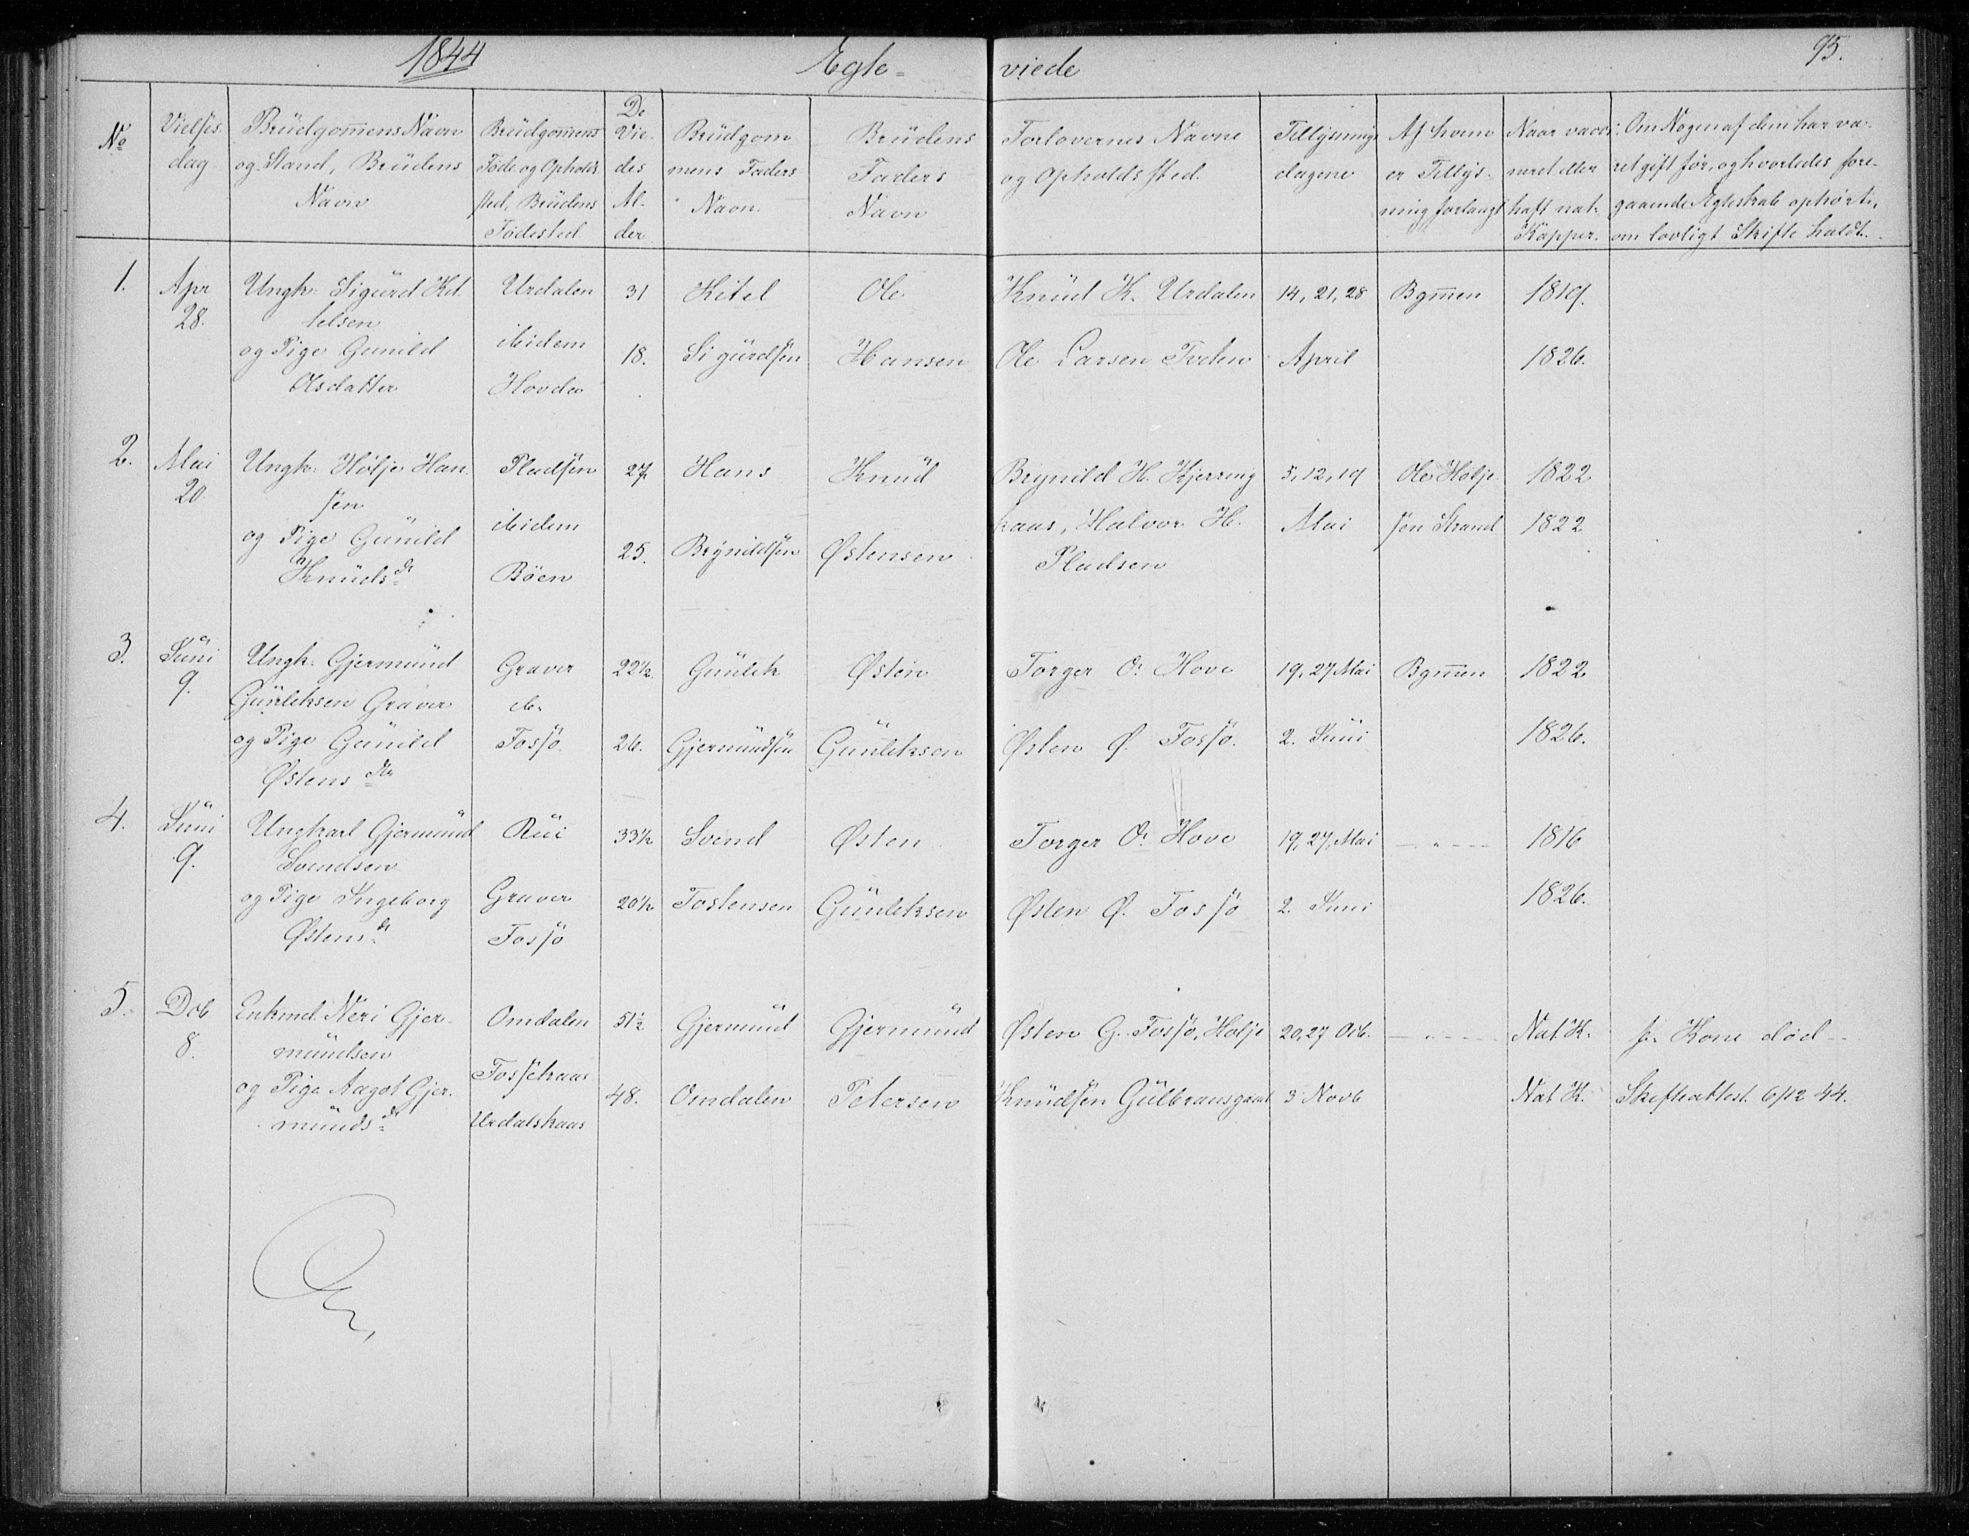 1844 Egte- viede 95.
No
Vielses dag
Brüdgom̄ens Navn og Stand, Brüdens Navn
Brüdgom̄ens Føde og Opholds sted, Brüdens Fødested
De Vie- des Al- der
Brüdgom mens Faders Navn
Brüdens Faders Navn
Forlovernes Navne og Opholdssted
Tillysnings dagene
Af hvem er Tillys- ning forlangt
Naar vacci- neret eller haft nat. Kopper.
Om Nogen af dem har væ- ret gift før, og hvorledes fore- gaaende Ægteskab ophørte, om lovligt Skifte holdt.
1.
Apr 28.
Ungk: Sigürd Kit telsen
og Pige Gunild Olsdatter
Urdalen
ibidem
Hovden
31
18.
Kitel
Sigürdsen
Ole
Hansen
Knüd K. Urdalen
Ole Larsen Tveten
14, 21, 28 April
Bgm̄en
1819.
1826.
2.
Mai 20
Ungk: Hølje Han sen
og Pige Günild Knüdsdr
Pladsen
ibidem
Böen
27
25.
Hans
Brynildsen
Knüd
Østensen
Brynild H. Kjerring kaas, Halvor H. Pladsen
5, 12, 19 Mai
Ole Holje sen Strand
1822
1822
3.
Jüni 9.
Ungk: Gjermünd Günleksen Graver
og Pige Günild Østens dtr
Graver
ib.
Fossö.
22½
26.
Günlek
Gjermündsen
Østen
Günlekson
Torger O. Hove
Østen Ø. Fossö.
19, 27 Mai
2. Juni
Bgm̄en
1822
1826.
4.
Jüni 9.
Ungkarl Gjermünd Svendsen
og Pige Ingeborg Østensdr
Rüi
Graver
Fossö
33½
20½
Svend
Tostensen
Østen
Günleksen
Torger O. Hove
Østen Ø. Fossö
19, 27, Mai
2. Juni
— „ —
1816
1826.
5.
Dcb 8.
Enkmd. Neri Gjer- mündsen
og Pige Aagot Gjer. münds dr
Omdalen
Fossekaas
Urdalskaas
51½
48.
Gjermünd
Omdalen
Gjermünd
Petersen
Østen G. Fossö, Holje
Knüdsen Gülbransgaard
20, 27 Octb.
3 Novb
— „ —
Nat K.
Nat K.
f. Kone död —
Skifteattest 6/12 44.